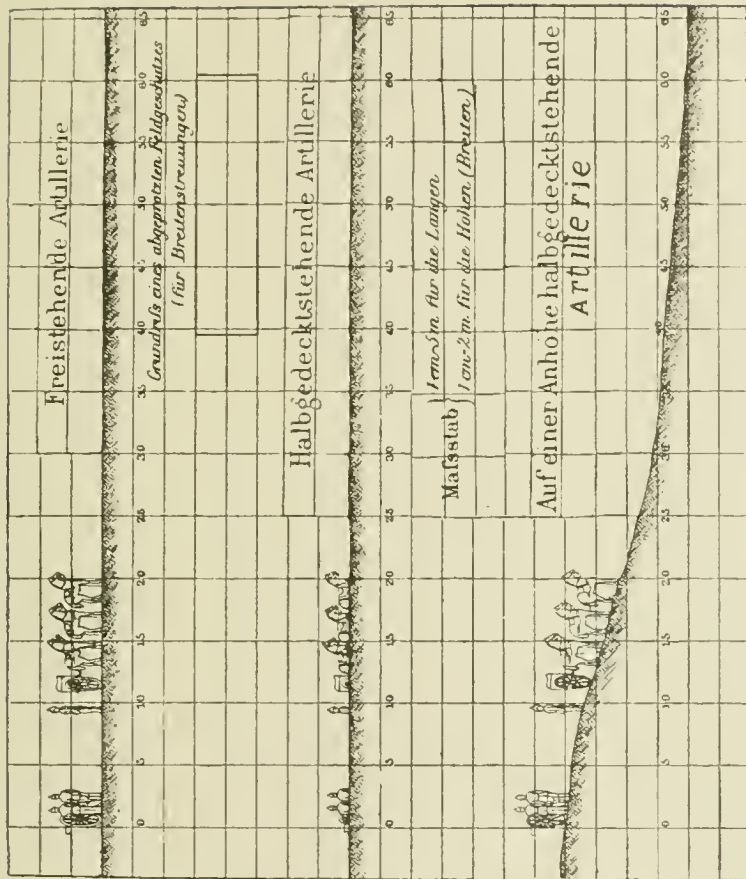 Freistehende Artillerie
0 5 10 15 20 25 30 35 40 45 50 55 60 65
Grundrifs eines abgeprotzten Feldgeschützes
(für Breitenstreuungen)
Halbgedecktstehende Artillerie
0 5 10 15 20 25 30 35 40 45 50 55 60 65
Mafsstab } 1cm=5m für die Längen
1cm=2m. für die Höhen (Breiten)
Auf einer Anhöhe halbgedecktstehende
Artillerie
0 5 10 15 20 25 30 35 40 45 50 55 60 65